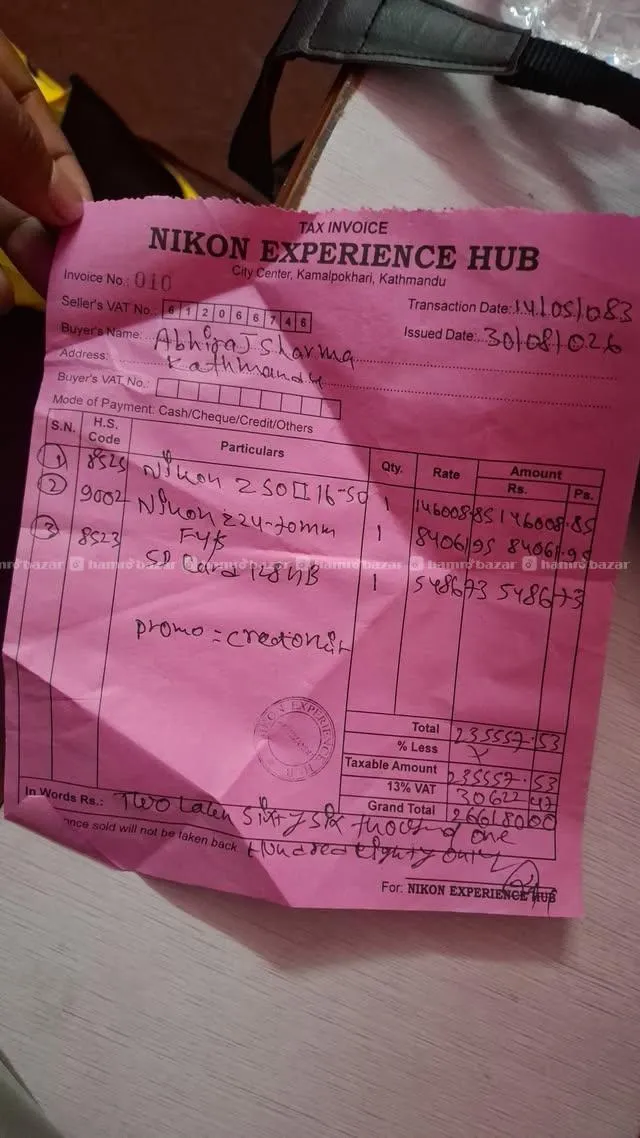 TAX INVOICE
NIKON EXPERIENCE HUB
City Center, Kamalpokhari, Kathmandu
Invoice No.: 010
Transaction Date: 14/05/083
Seller's VAT No.: 612066746
Issued Date: 30/08/026
Buyer's Name: Abhiraj Sharma
Address: Kathmandu
Buyer's VAT No.:
Mode of Payment: Cash/Cheque/Credit/Others
S.N. H.S. Code Particulars Qty. Rate Amount Rs. Ps.
1 8525 Nikon Z50II 16-50 1 146008.85 146008.85
2 9002 Nikon Z 24-70mm F4/s 1 84061.95 84061.95
3 8523 SD Card 128GB 1 5486.73 5486.73
hamro bazar hamro bazar hamro bazar hamro bazar
promo =
NIKON EXPERIENCE HUB
Total 235557.53
% Less X
Taxable Amount 235557.53
13% VAT 30622.47
Grand Total 266180.00
In Words Rs.: Two Lakh Sixty six thousand one
Hundred eighty only
once sold will not be taken back
For: NIKON EXPERIENCE HUB